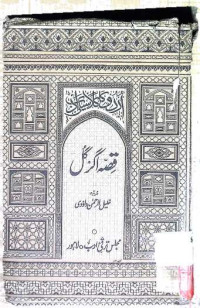 اردو کا کلاسیکی ادب
قصہ اگر گل
مرتبہ
خلیل الرحمن داؤدی
مجلس ترقی ادب، لاہور